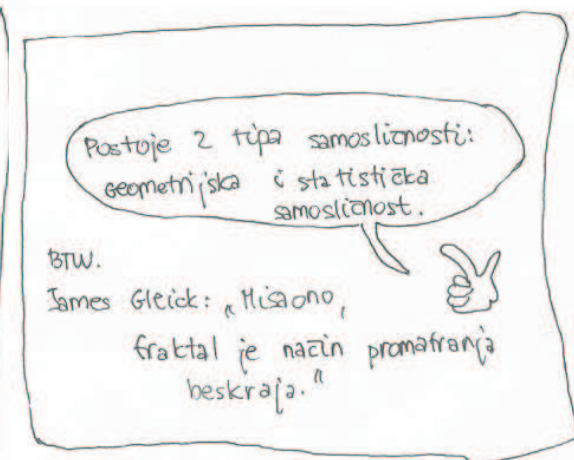 Postoje 2 tipa samosličnosti:
Geometrijska i statistička
samosličnost.
BTW.
James Gleick: „Misaono,
fraktal je način promatranja
beskraja."